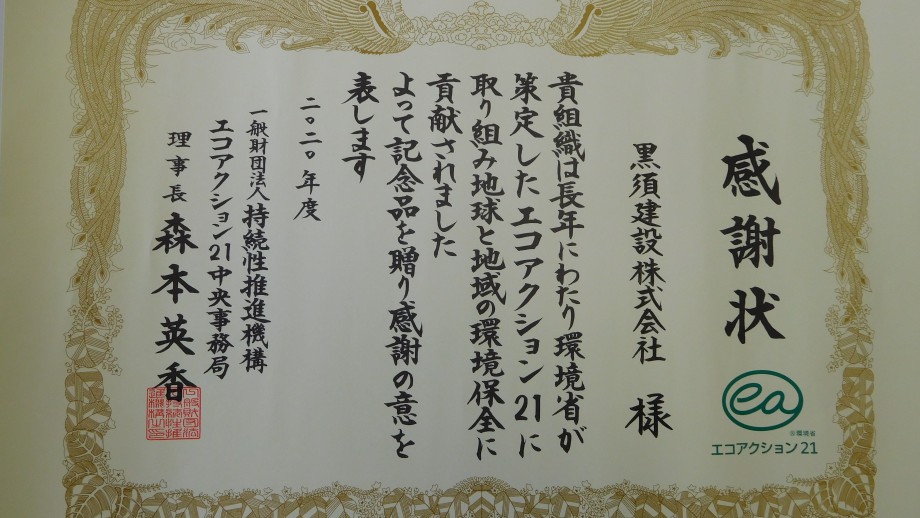 感謝状
ea
©環境省
エコアクション21
黒須建設株式会社 様
貴組織は長年にわたり環境省が
策定したエコアクション21に
取り組み地球と地域の環境保全に
貢献されました
よって記念品を贈り感謝の意を
表します
二〇二〇年度
一般財団法人 持続性推進機構
エコアクション21中央事務局
理事長 森本英香